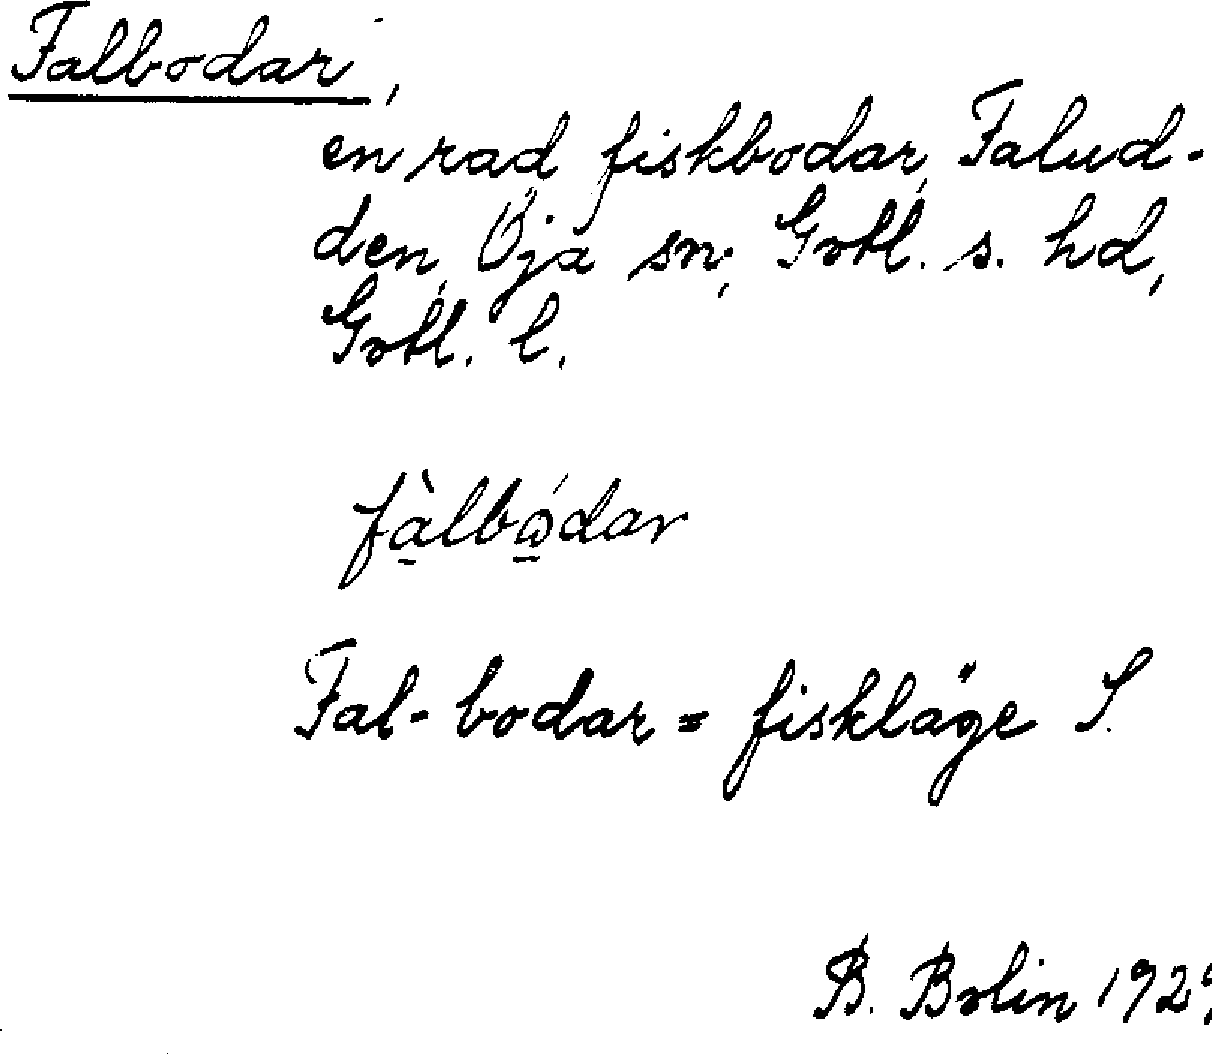 Falbodar,
en rad fiskbodar, Falud-
den, Öja sn, Gotl. s. hd,
Gotl. l.
fàlbǿdar
Fal-bodar = fiskläge S.
B. Bolin